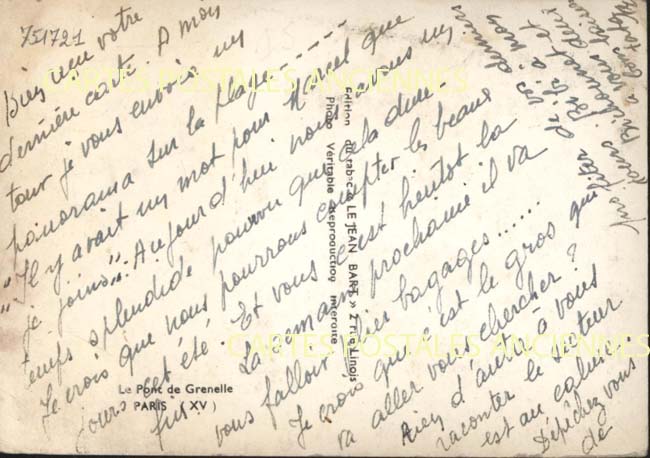 751721
Bien reçu votre
dernière carte. A mon
tour je vous envoie un
panorama sur la plage-----
"Il y avait un mot pour Marcel que
je joins". Aujourd'hui nous avons un
temps splendide pourvu que cela dure
Je crois que nous pourrons compter les beaux
jours cet été. Et vous c'est bientôt la
fin. La semaine prochaine il va
vous falloir plier bagages......
Je crois que c'est le gros qui
va aller vous chercher ?
Rien d'autre à vous
raconter le secteur
est au calme
Dépêchez vous
de
Edition du tabac « LE JEAN BART » 2 rue Linois
Photo Véritable Reproduction interdite
Le Pont de Grenelle
PARIS (XV)
CARTES POSTALES ANCIENNES
CARTES POSTALES ANCIENNES